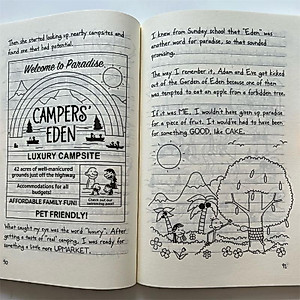 Then she started looking up nearby campsites and
found one that had potential.
Welcome to Paradise
CAMPERS'
EDEN
LUXURY CAMPSITE
42 acres of well-manicured
grounds just off the highway
Accommodations for all
budgets!
Check out our
swimming pool!
AFFORDABLE FAMILY FUN!
PET FRIENDLY!
What caught my eye was the word "luxury". After
getting a taste of "real" camping, I was ready for
something a little more UPMARKET.
90
I knew from Sunday school that "Eden" was
another word for paradise, so that sounded
promising.
The way I remember it, Adam and Eve got kicked
out of the Garden of Eden because one of them
was tempted to eat an apple from a forbidden tree.
If it was ME, I wouldn't have given up paradise
for a piece of fruit. It would've had to have been
for something GOOD, like CAKE.
91